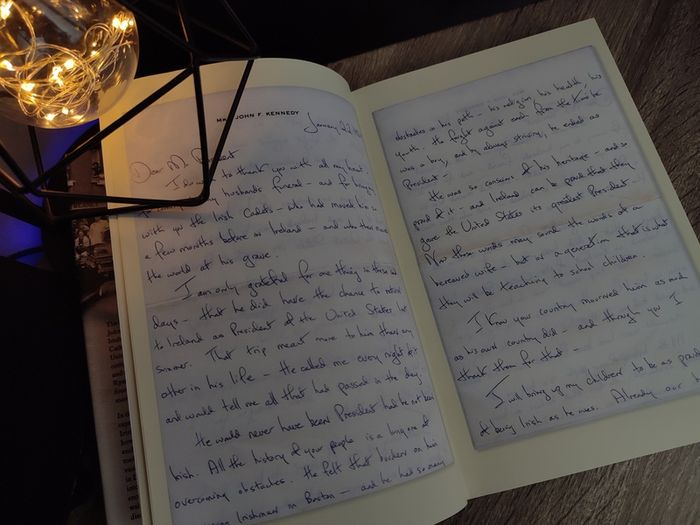 JOHN F. KENNEDY
January 22
Dear Mr President
I to thank you with all my heart
my husbands funeral – and for bringing
with you the Irish Cadets – who had moved him so
a few months before in Ireland – and who then moved
the world at his grave.
I am only grateful for one thing in these sad
days – that he did have the chance to return
to Ireland as President of the United States last
summer. That trip meant more to him than any
other in his life – He called me every night of it
and would tell me all that had passed in the day
He would never have been President had he not been
Irish. All the history of your people is a long one of
overcoming obstacles. He felt that burden on him
Irishman in Boston – and he had so many
obstacles in his path – his religion, his health, his
youth – He fought against each from the time he
was a boy, and by always striving, he ended as
President –
He was so conscious of his heritage – and so
proud of it – and Ireland can be proud that they
gave the United States its greatest President.
Now those words may sound the words of a
bereaved wife – but in a generation that is what
they will be teaching to school children.
I know your country mourned him as much
as his own country did – and through you I
thank them for that –
I will bring up my children to be as proud
of being Irish as he was. Already our